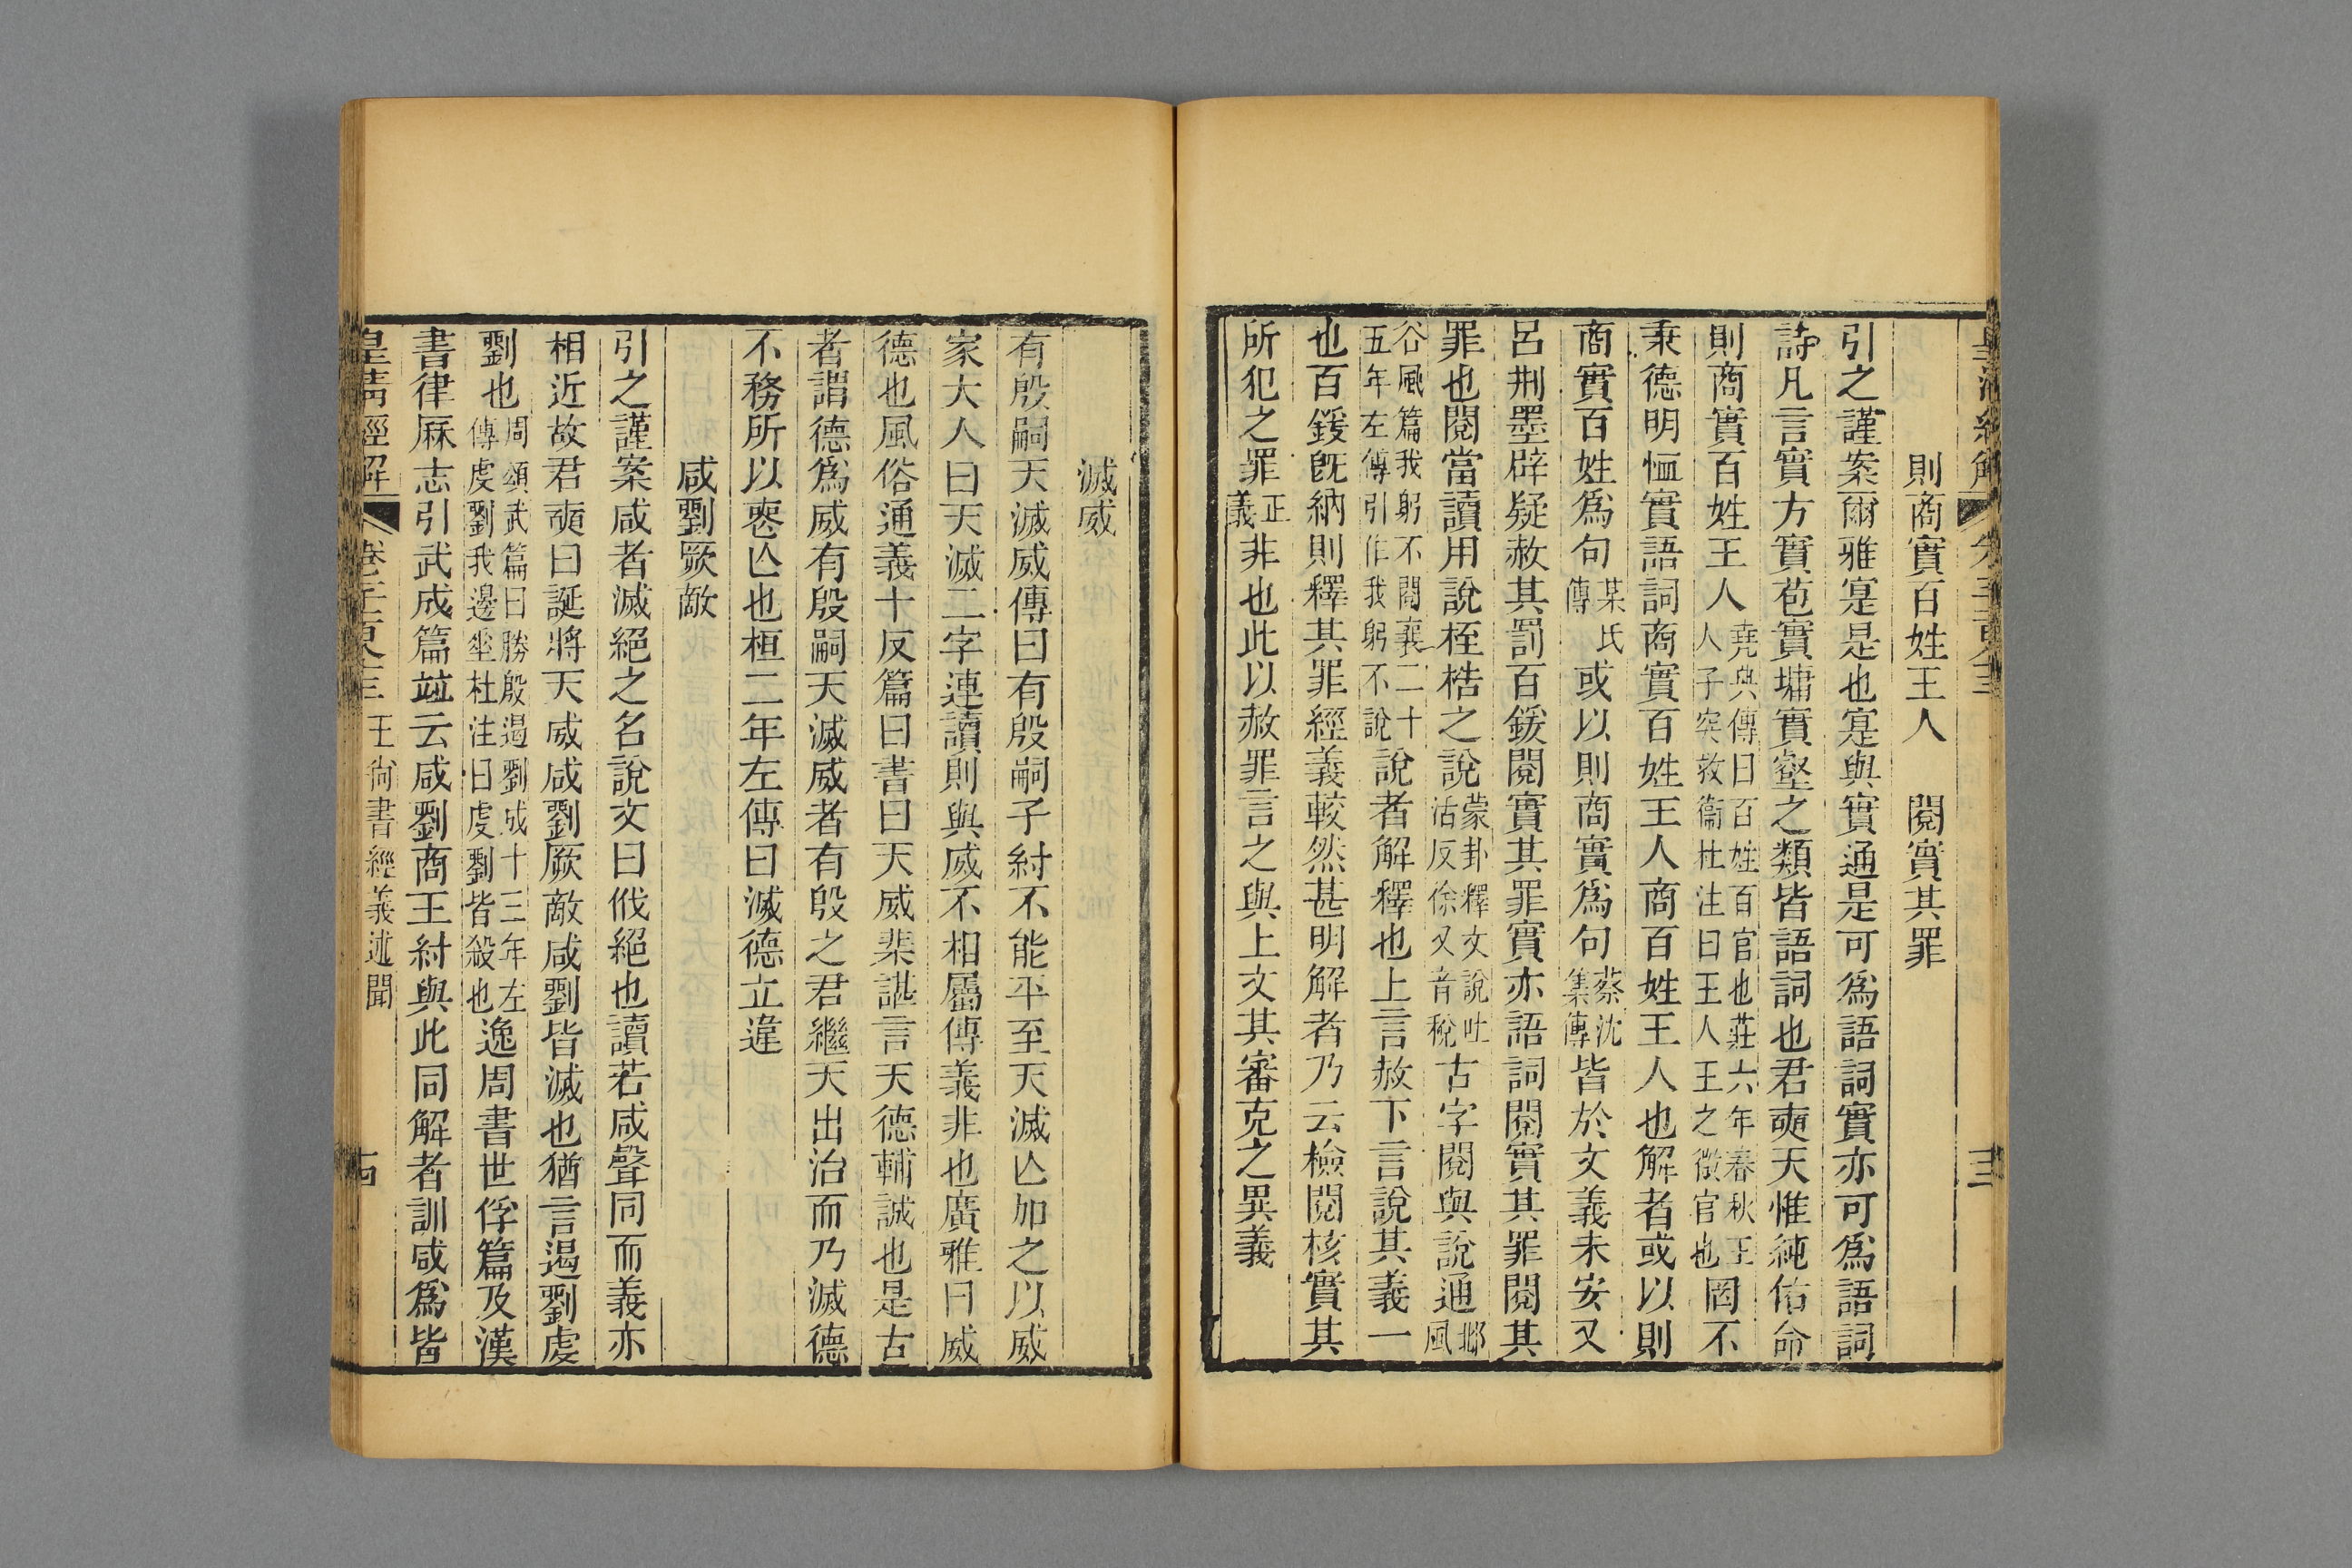 則商實百姓王人　閱實其罪
引之謹案爾雅寔是也寔與實通是可爲語詞實亦可爲語詞
詩凡言實方實苞實墉實壑之類皆語詞也君奭天惟純佑命
則商實百姓王人堯典傳曰百姓百官也莊六年春秋王人子突救衞杜注曰王人王之微官也罔不
秉德明恤實語詞商實百姓王人商百姓王人也解者或以則
商實百姓爲句某氏傳或以則商實爲句蔡沈集傳皆於文義未安又
呂刑墨辟疑赦其罰百鍰閱實其罪實亦語詞閱實其罪閱其
罪也閱當讀用說桎梏之說蒙卦釋文說吐活反徐又音稅古字閱與說通邶風
谷風篇我躬不閱襄二十五年左傳引作我躬不說說者解釋也上言赦下言說其義一
也百鍰旣納則釋其罪經義較然甚明解者乃云檢閱核實其
所犯之罪正義非也此以赦罪言之與上文其審克之異義
滅威
有殷嗣天滅威傳曰有殷嗣子紂不能平至天滅亾加之以威
家大人曰天滅二字連讀則與威不相屬傳義非也廣雅曰威
德也風俗通義十反篇曰書曰天威棐諶言天德輔誠也是古
者謂德爲威有殷嗣天滅威者有殷之君繼天出治而乃滅德
不務所以喪亾也桓二年左傳曰滅德立違
咸劉厥敵
引之謹案咸者滅絕之名說文曰㦰絕也讀若咸聲同而義亦
相近故君奭曰誕將天威咸劉厥敵咸劉皆滅也猶言遏劉虔
劉也周頌武篇曰勝殷遏劉成十三年左傳虔劉我邊垂杜注曰虔劉皆殺也逸周書世俘篇及漢
書律厤志引武成篇竝云咸劉商王紂與此同解者訓咸爲皆
皇清經解
王尙書經義述聞